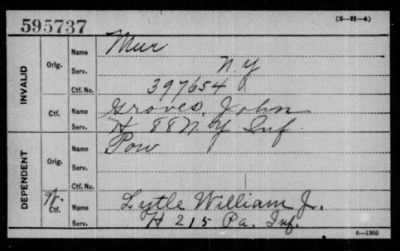 595737
(3-H-4)
INVALID
Orig.
Name Muir
Serv. N.Y
Ctf. No. 397654
Ctf.
Name Groves, John
Serv. H 88 N.Y Inf.
DEPENDENT
Orig.
Name Pow
Serv.
Ctf. No.
Ctf.
Name Lytle William J.
Serv. H 215 Pa. Inf.
6-1366